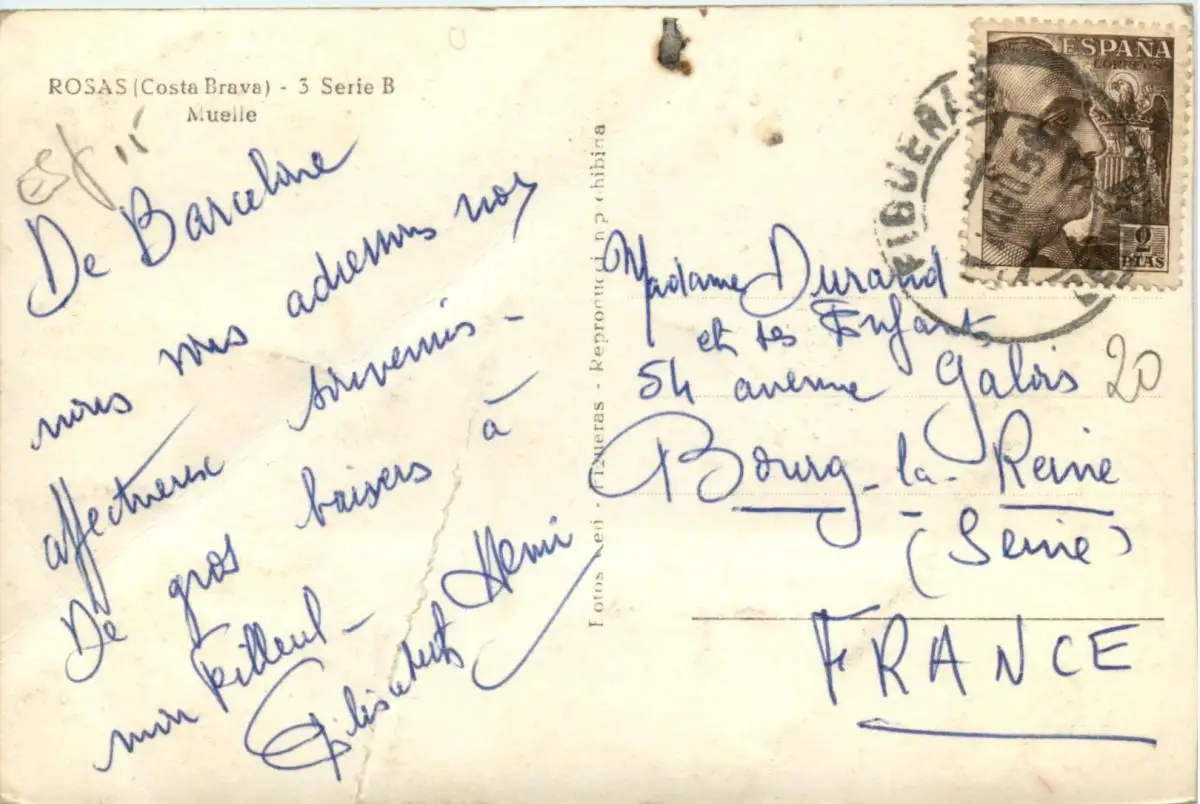 ROSAS (Costa Brava) - 3 Serie B
Muelle
De Barcelone
nous vous adressons nos
affectueux souvenirs -
De gros baisers à
mon filleul -
Elisabeth Henri
Fotos - Figueras - Reproducci n p ohibina
ESPAÑA
CORREOS
2
PTAS
FIGUERAS
Madame Durand
et ses Enfants
54 avenue Galois
20
Bourg-la-Reine
(Seine)
FRANCE